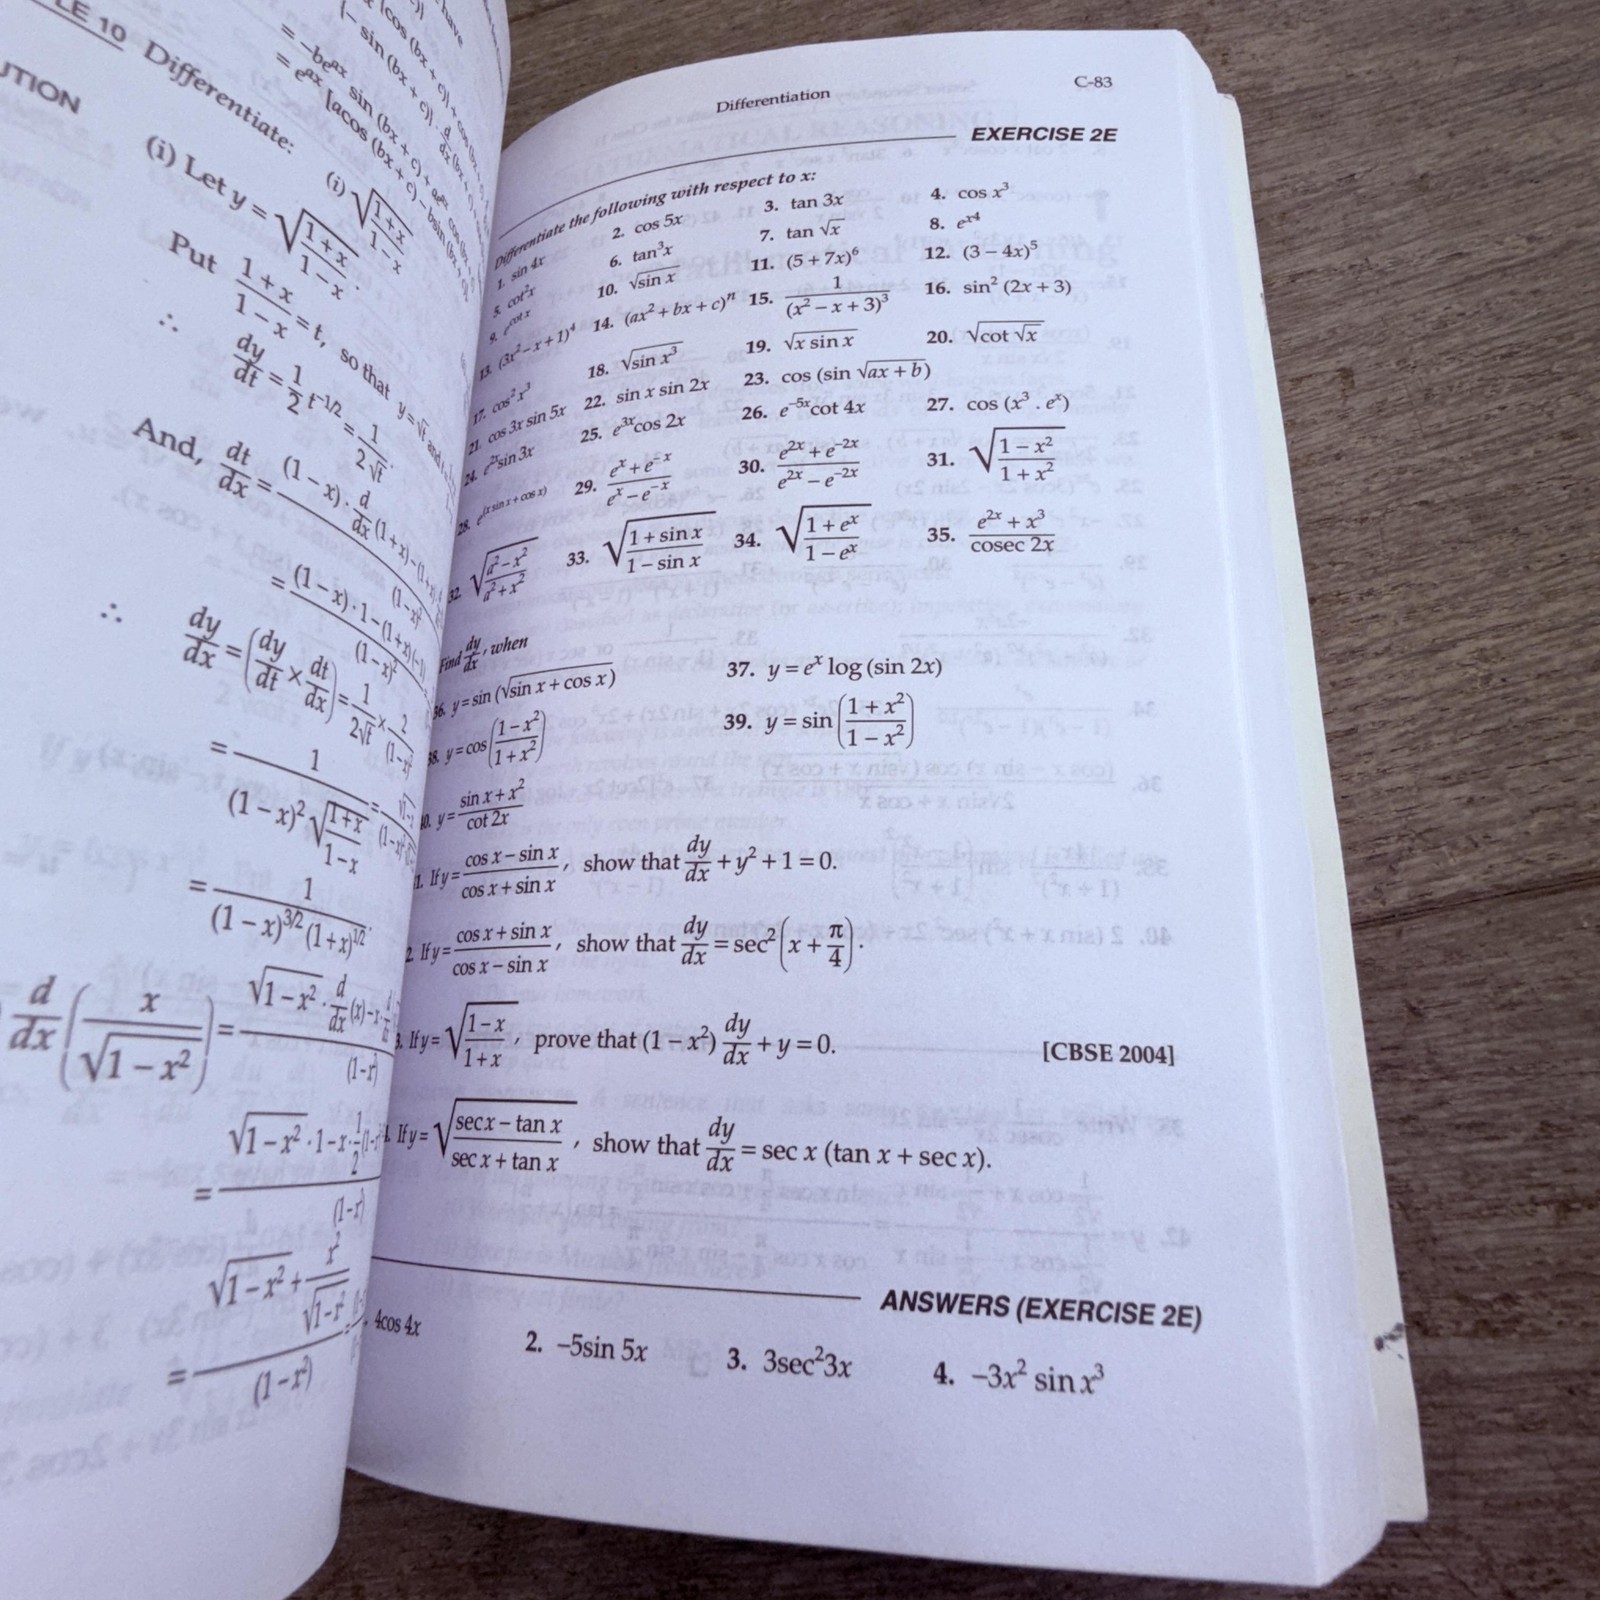 LE 10 Differentiate:
UTION
(i) √((1+x)/(1−x))
(i) Let y = √((1+x)/(1−x)).
Put (1+x)/(1−x) = t, so that y = √t and
∴ dy/dt = 1/2 t^(−1/2) = 1/(2√t).
And, dt/dx = (1−x)·d/dx(1+x)−(1+x)
(1−x)²
= (1−x)·1−(1+x)(−1)
(1−x)²
∴ dy/dx = (dy/dt × dt/dx) = 1/(2√t) × 2/(1−x)²
= 1/((1−x)² √((1+x)/(1−x))) =
= 1/((1−x)^(3/2) (1+x)^(1/2)).
d/dx (x/√(1−x²)) = √(1−x²)·d/dx(x)−x·
√(1−x²)·1−x·1/2
=
√(1−x²)+x²/√(1−x²)
=
(1−x²)
Differentiation C-83
EXERCISE 2E
Differentiate the following with respect to x:
1. sin 4x 2. cos 5x 3. tan 3x 4. cos x³
5. cot²x 6. tan³x 7. tan √x 8. e^(x⁴)
9. e^(cot x) 10. √(sin x) 11. (5 + 7x)⁶ 12. (3 – 4x)⁵
13. (3x² – x + 1)⁴ 14. (ax² + bx + c)ⁿ 15. 1/(x² – x + 3)³ 16. sin² (2x + 3)
17. cos² x³ 18. √(sin x³) 19. √(x sin x) 20. √(cot √x)
21. cos 3x sin 5x 22. sin x sin 2x 23. cos (sin √(ax + b))
24. e^(2x) sin 3x 25. e^(3x) cos 2x 26. e^(–5x) cot 4x 27. cos (x³ . e^x)
28. e^(x sin x + cos x) 29. (e^x + e^(–x))/(e^x – e^(–x)) 30. (e^(2x) + e^(–2x))/(e^(2x) – e^(–2x)) 31. √((1 – x²)/(1 + x²))
32. √((a² – x²)/(a² + x²)) 33. √((1 + sin x)/(1 – sin x)) 34. √((1 + e^x)/(1 – e^x)) 35. (e^(2x) + x³)/(cosec 2x)
Find dy/dx, when
36. y = sin (√(sin x + cos x)) 37. y = e^x log (sin 2x)
38. y = cos ((1 – x²)/(1 + x²)) 39. y = sin ((1 + x²)/(1 – x²))
0. y = (sin x + x²)/(cot 2x)
1. If y = (cos x – sin x)/(cos x + sin x), show that dy/dx + y² + 1 = 0.
2. If y = (cos x + sin x)/(cos x – sin x), show that dy/dx = sec² (x + π/4).
3. If y = √((1 – x)/(1 + x)), prove that (1 – x²) dy/dx + y = 0. [CBSE 2004]
If y = √((sec x – tan x)/(sec x + tan x)), show that dy/dx = sec x (tan x + sec x).
ANSWERS (EXERCISE 2E)
4cos 4x 2. –5sin 5x 3. 3sec²3x 4. –3x² sin x³